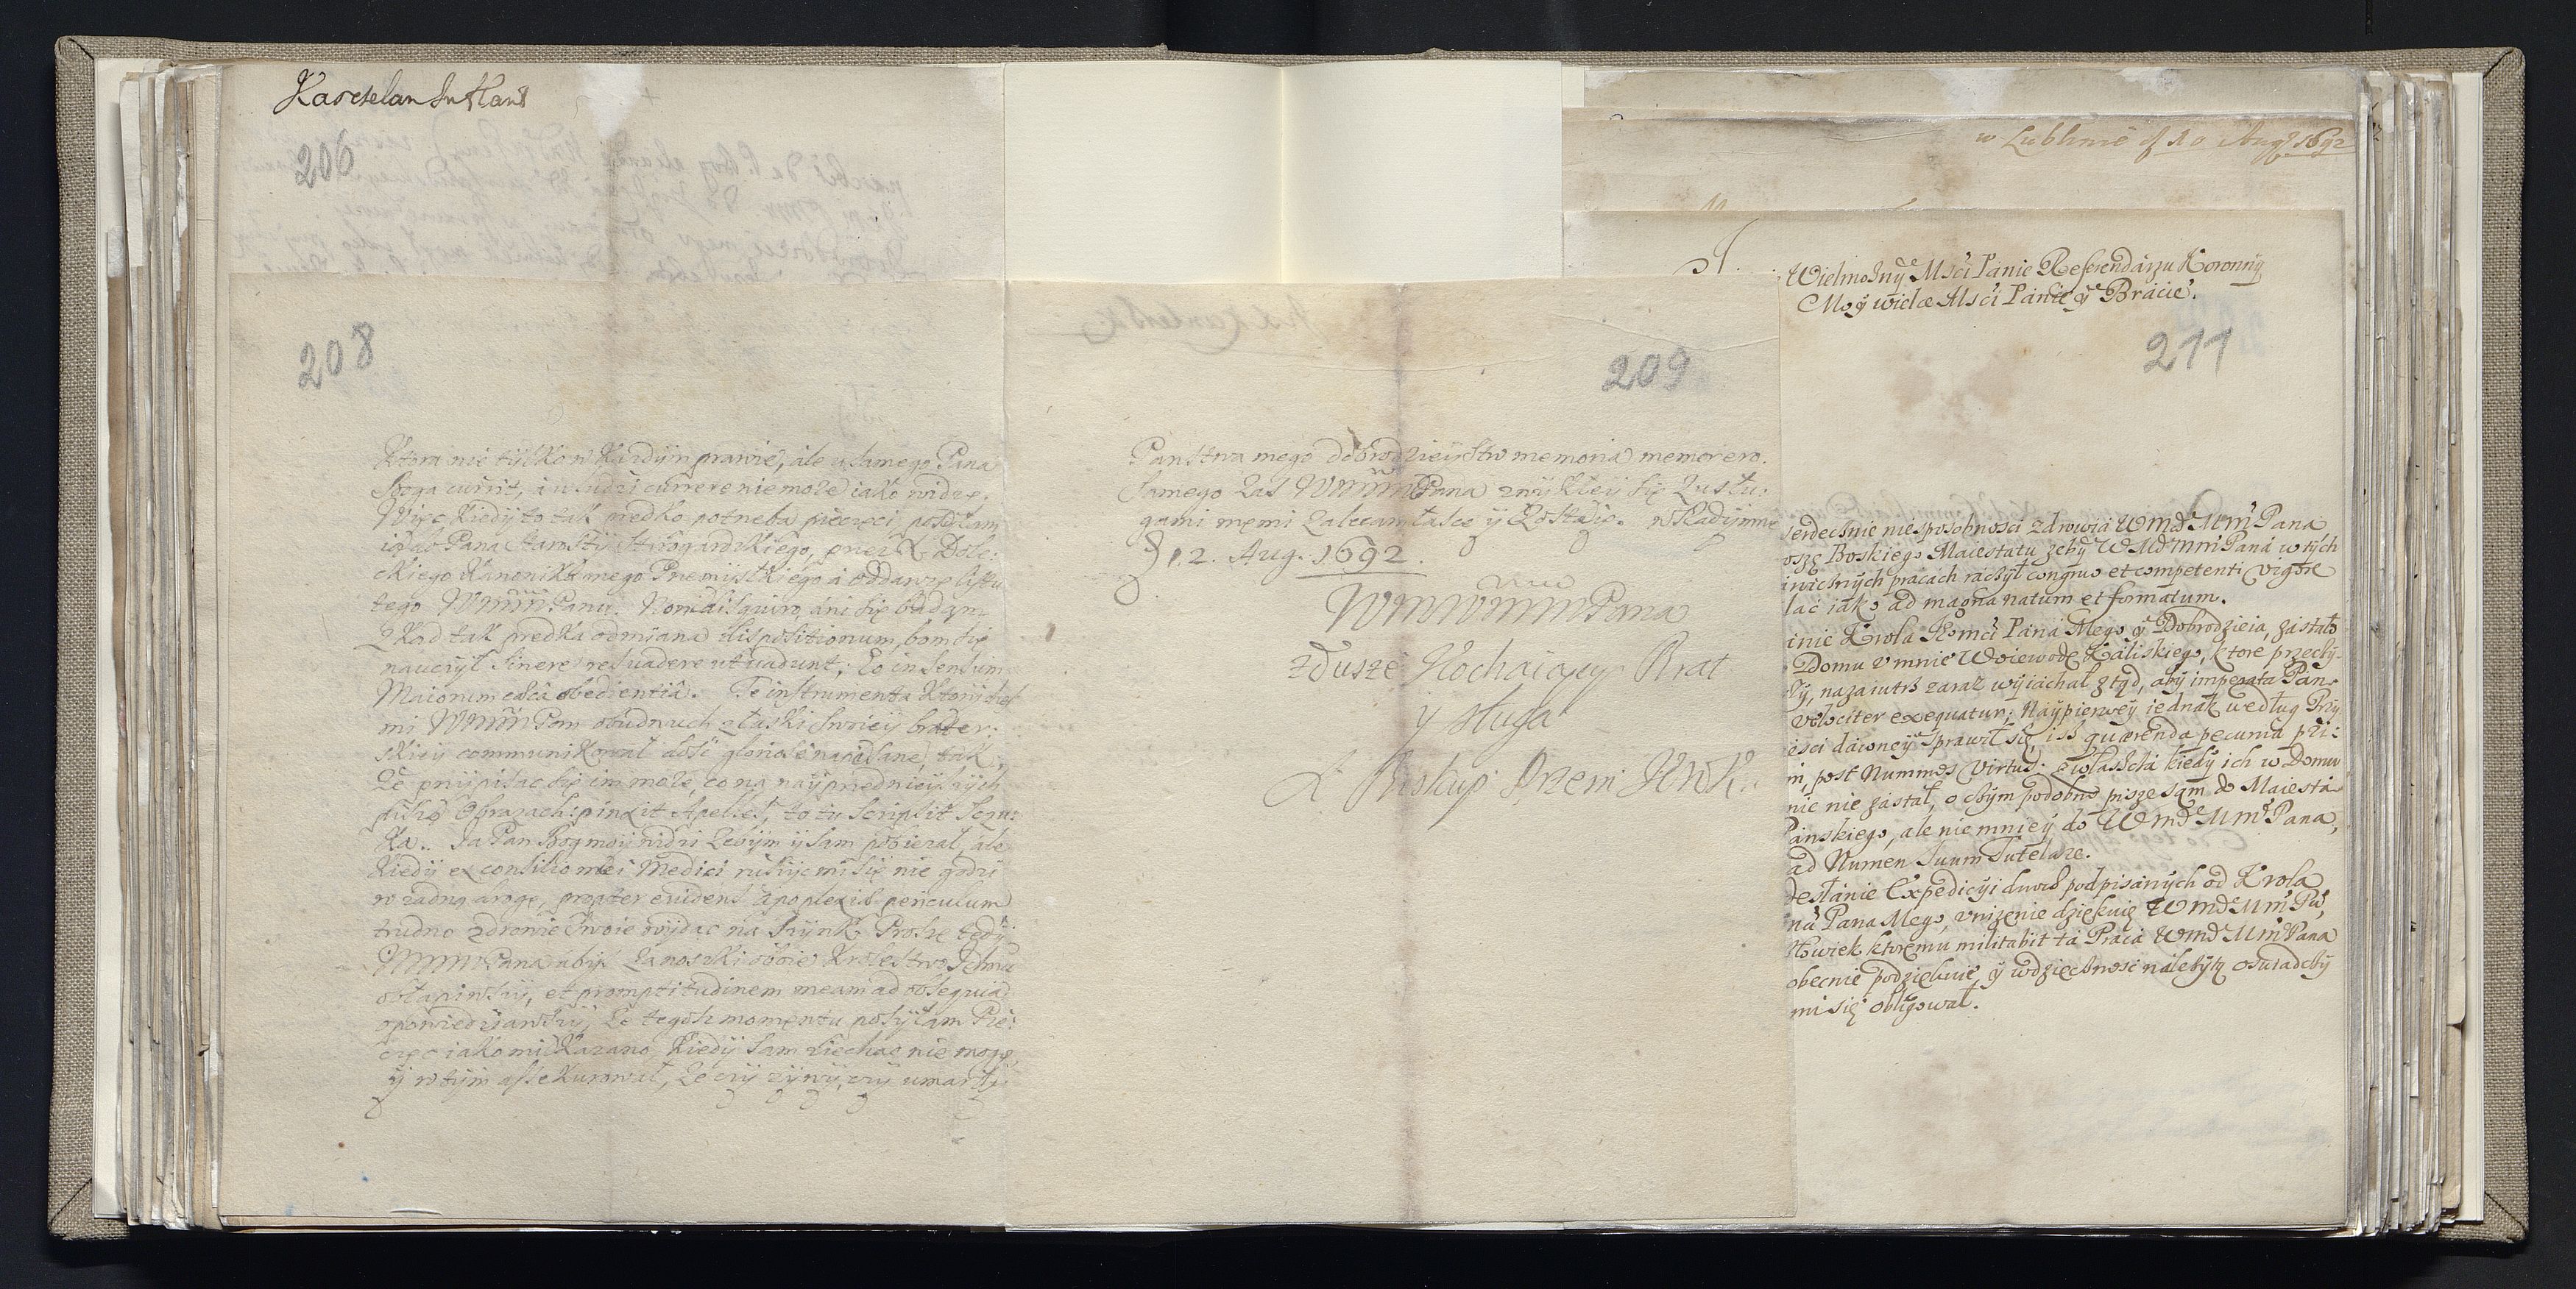 Kasctelan Inflans
206
208
Ktora nie tylko w Każdym prawie, ale u samego Pana
Boga currit, a u ludzi currere nie może iako widzę.
Więc kiedy to tak prędko potrzeba pieczęci, posyłam
Pana Starosty Starogardzkiego, przez X. Dole-
ckiego Kanonika mego Przemyskiego a oddawcę listu
tego WMMM Panu. Non disquiro, ani się badam
Zkad tak prędka odmiana dispositionum, bom się
nauczył sinere res vadere ut vadunt; Eo in sensum
Maiorum cæca obedientia. Te instrumenta
mi WMMM Pan obudwuch z łaski swoiey brater-
skiey communikował dość gloriose napisane, tak,
Że przypisać się im może, co na nayprzednieyszych
Obrazach: pinxit Apelles, to tu scripsit Szczu-
ka. Ia Pan Bog moy widzi Zebym y sam pobieżał, ale
kiedy ex consilio mei Medici ruszyć mi się nie godzi
w żadną drogę, propter evidens apoplexis periculum
trudno zdrowie swoie wydać na szynk. Proszę tedy
WMMM Pana abyś Panoszki oboie Krolestwo Ichmć
obłapiwszy, et promptitudinem meam ad obsequia
opowiedziawszy, Że tegosz momentu posyłam Pie-
częć iako mi kazano, kiedy sam ziechać nie mogę,
y w tym assekurował, Że czy żywy, czy umarły
209
Panstwa mego dobrodzieystw memoria memorero.
Samego Zaś WMMM Pana zwykłey się Zusłu-
gami memi Zalecam łasce y Zostaię. w Radymnie
12. Aug. 1692.
WMMMM Pana
z dusze Kochaiący Brat
y sługa
Biskup Przem
w Lublinie d 10 Aug. 1692
Wielmożny Mści Panie Referendarzu Koronny
Moy wielce Mści Panie y Bracie.
211
serdecznie niesposobnosci zdrowia WMd MM Pana
oszę Boskiego Maiestatu żeby WMd MM Pana w tych
pracach raczył congruo et competenti vigore
lać iako ad magna natum et formatum.
inie Krola Jeomci Pana Mego y Dobrodzieia, zastało
Domu u mnie Woiewodę Kaliskiego, ktore przeczy-
y, nazaiutrz zaraz wyiachał ztąd, aby imperata Pan-
velociter exequatur; Naypierwey iednak według Przy
iesci dawney sprawił się, iż quærenda pecunia pri-
m, post Nummos Virtus: zwłaszcza kiedy ich w Domu
nie nie zastał, o czym podobno pisze sam do Maiesta-
Panskiego, ale nie mniey do WMd MM Pana,
ad Numen suum Tutelare.
desłanie Expedicyi dwuch podpisanych od Krola
na Pana Mego, unizenie dziękuię WMd MM Pu,
złowiek ktoremu militabit ta Praca WMd MM Pana
obecnie podziękuie, y wdzięcznosc należytą oswiadczy
mi się obligował.